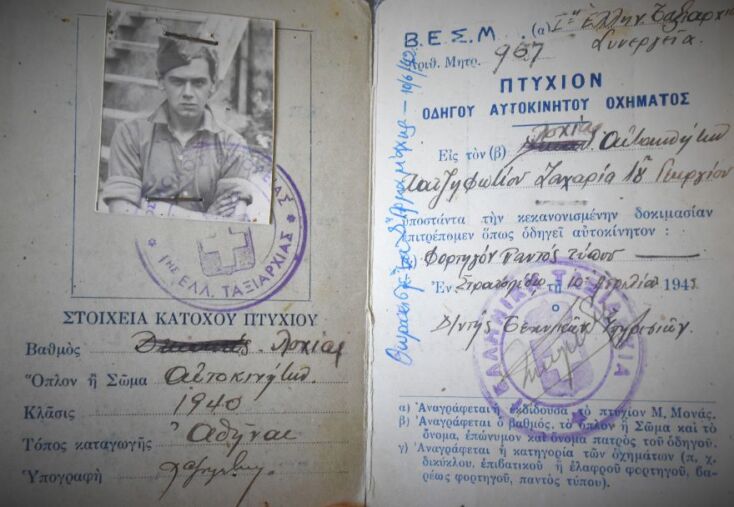 ΣΤΟΙΧΕΙΑ ΚΑΤΟΧΟΥ ΠΤΥΧΙΟΥ
Βαθμὸς Λοχίας
Ὅπλον ἢ Σῶμα αὐτοκινήτων
Κλᾶσις 1940
Τόπος καταγωγῆς Ἀθῆναι
Ὑπογραφὴ
1ης ΕΛΛ. ΤΑΞΙΑΡΧΙΑΣ
Β.Ε.Σ.Μ. (α) Ιη Ἑλλην. Ταξιαρχία
Συνεργεῖα
Ἀριθ. Μητρ. 967
ΠΤΥΧΙΟΝ
ΟΔΗΓΟΥ ΑΥΤΟΚΙΝΗΤΟΥ ΟΧΗΜΑΤΟΣ
Λοχίαν
Εἰς τὸν (β) Αὐτοκινήτων
Χατζηφωτίου Ζαχαρία τοῦ Γεωργίου
ὑποστάντα τὴν κεκανονισμένην δοκιμασίαν
ἐπιτρέπομεν ὅπως ὁδηγεῖ αὐτοκίνητον :
Φορτηγὸν παντὸς τύπου
Ἐν Στρατοπέδῳ τῇ 10 Ἀπριλίου 194
Ὁ
Δ/ντὴς Τεχνικῶν Ὑπηρεσιῶν
ΕΛΛΗΝΙΚΗ ΤΑΞΙΑΡΧΙΑ
α) Ἀναγράφεται ἡ ἐκδίδουσα τὸ πτυχίον Μ. Μονάς.
β) Ἀναγράφεται ὁ βαθμός, τὸ ὅπλον ἢ Σῶμα καὶ τὸ
ὄνομα, ἐπώνυμον καὶ ὄνομα πατρὸς τοῦ ὁδηγοῦ.
γ) Ἀναγράφεται ἡ κατηγορία τῶν ὀχημάτων (π. χ.
δικύκλου, ἐπιβατικοῦ ἢ ἐλαφροῦ φορτηγοῦ, βα-
ρέως φορτηγοῦ, παντὸς τύπου).
10/6/42